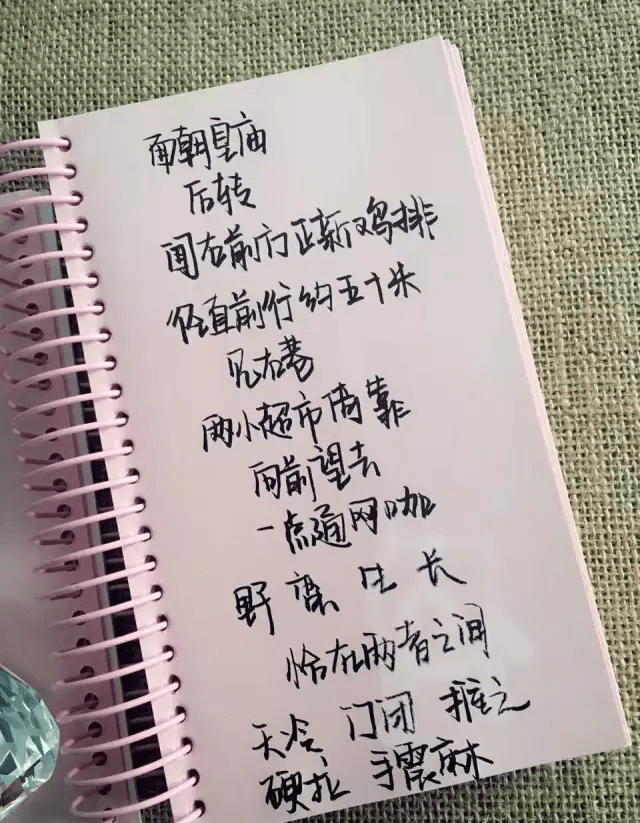 面朝皇庙
后转
闻右前方正新鸡排
径直前行约五十米
见右巷
两小超市倚靠
向前望去
一点通网咖
野蛮生长
恰在两者之间
天冷 门闭 推之
硬拉 手震麻